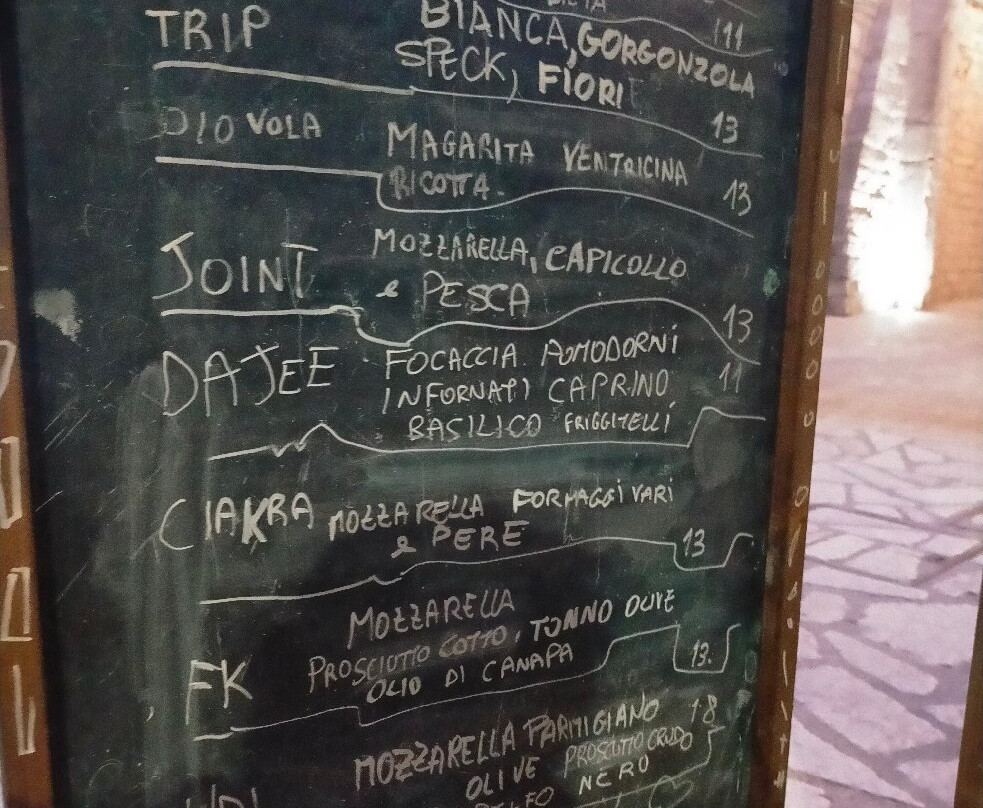 11
TRIP BIANCA, GORGONZOLA
SPECK, FIORI
13
DIO VOLA MAGARITA VENTRICINA
RICOTTA. 13
JOINT MOZZARELLA, CAPICOLLO
e PESCA
13
DAJEE FOCACCIA. POMODORNI
INFORNATI CAPRINO 11
BASILICO FRIGGITELLI
CIAKRA MOZZARELLA FORMAGGI VARI
e PERE 13
MOZZARELLA
FK PROSCIUTTO COTTO, TONNO OLIVE
OLIO DI CANAPA 13.
MOZZARELLA PARMIGIANO 18
OLIVE PROSCIUTTO CRUDO
NERO